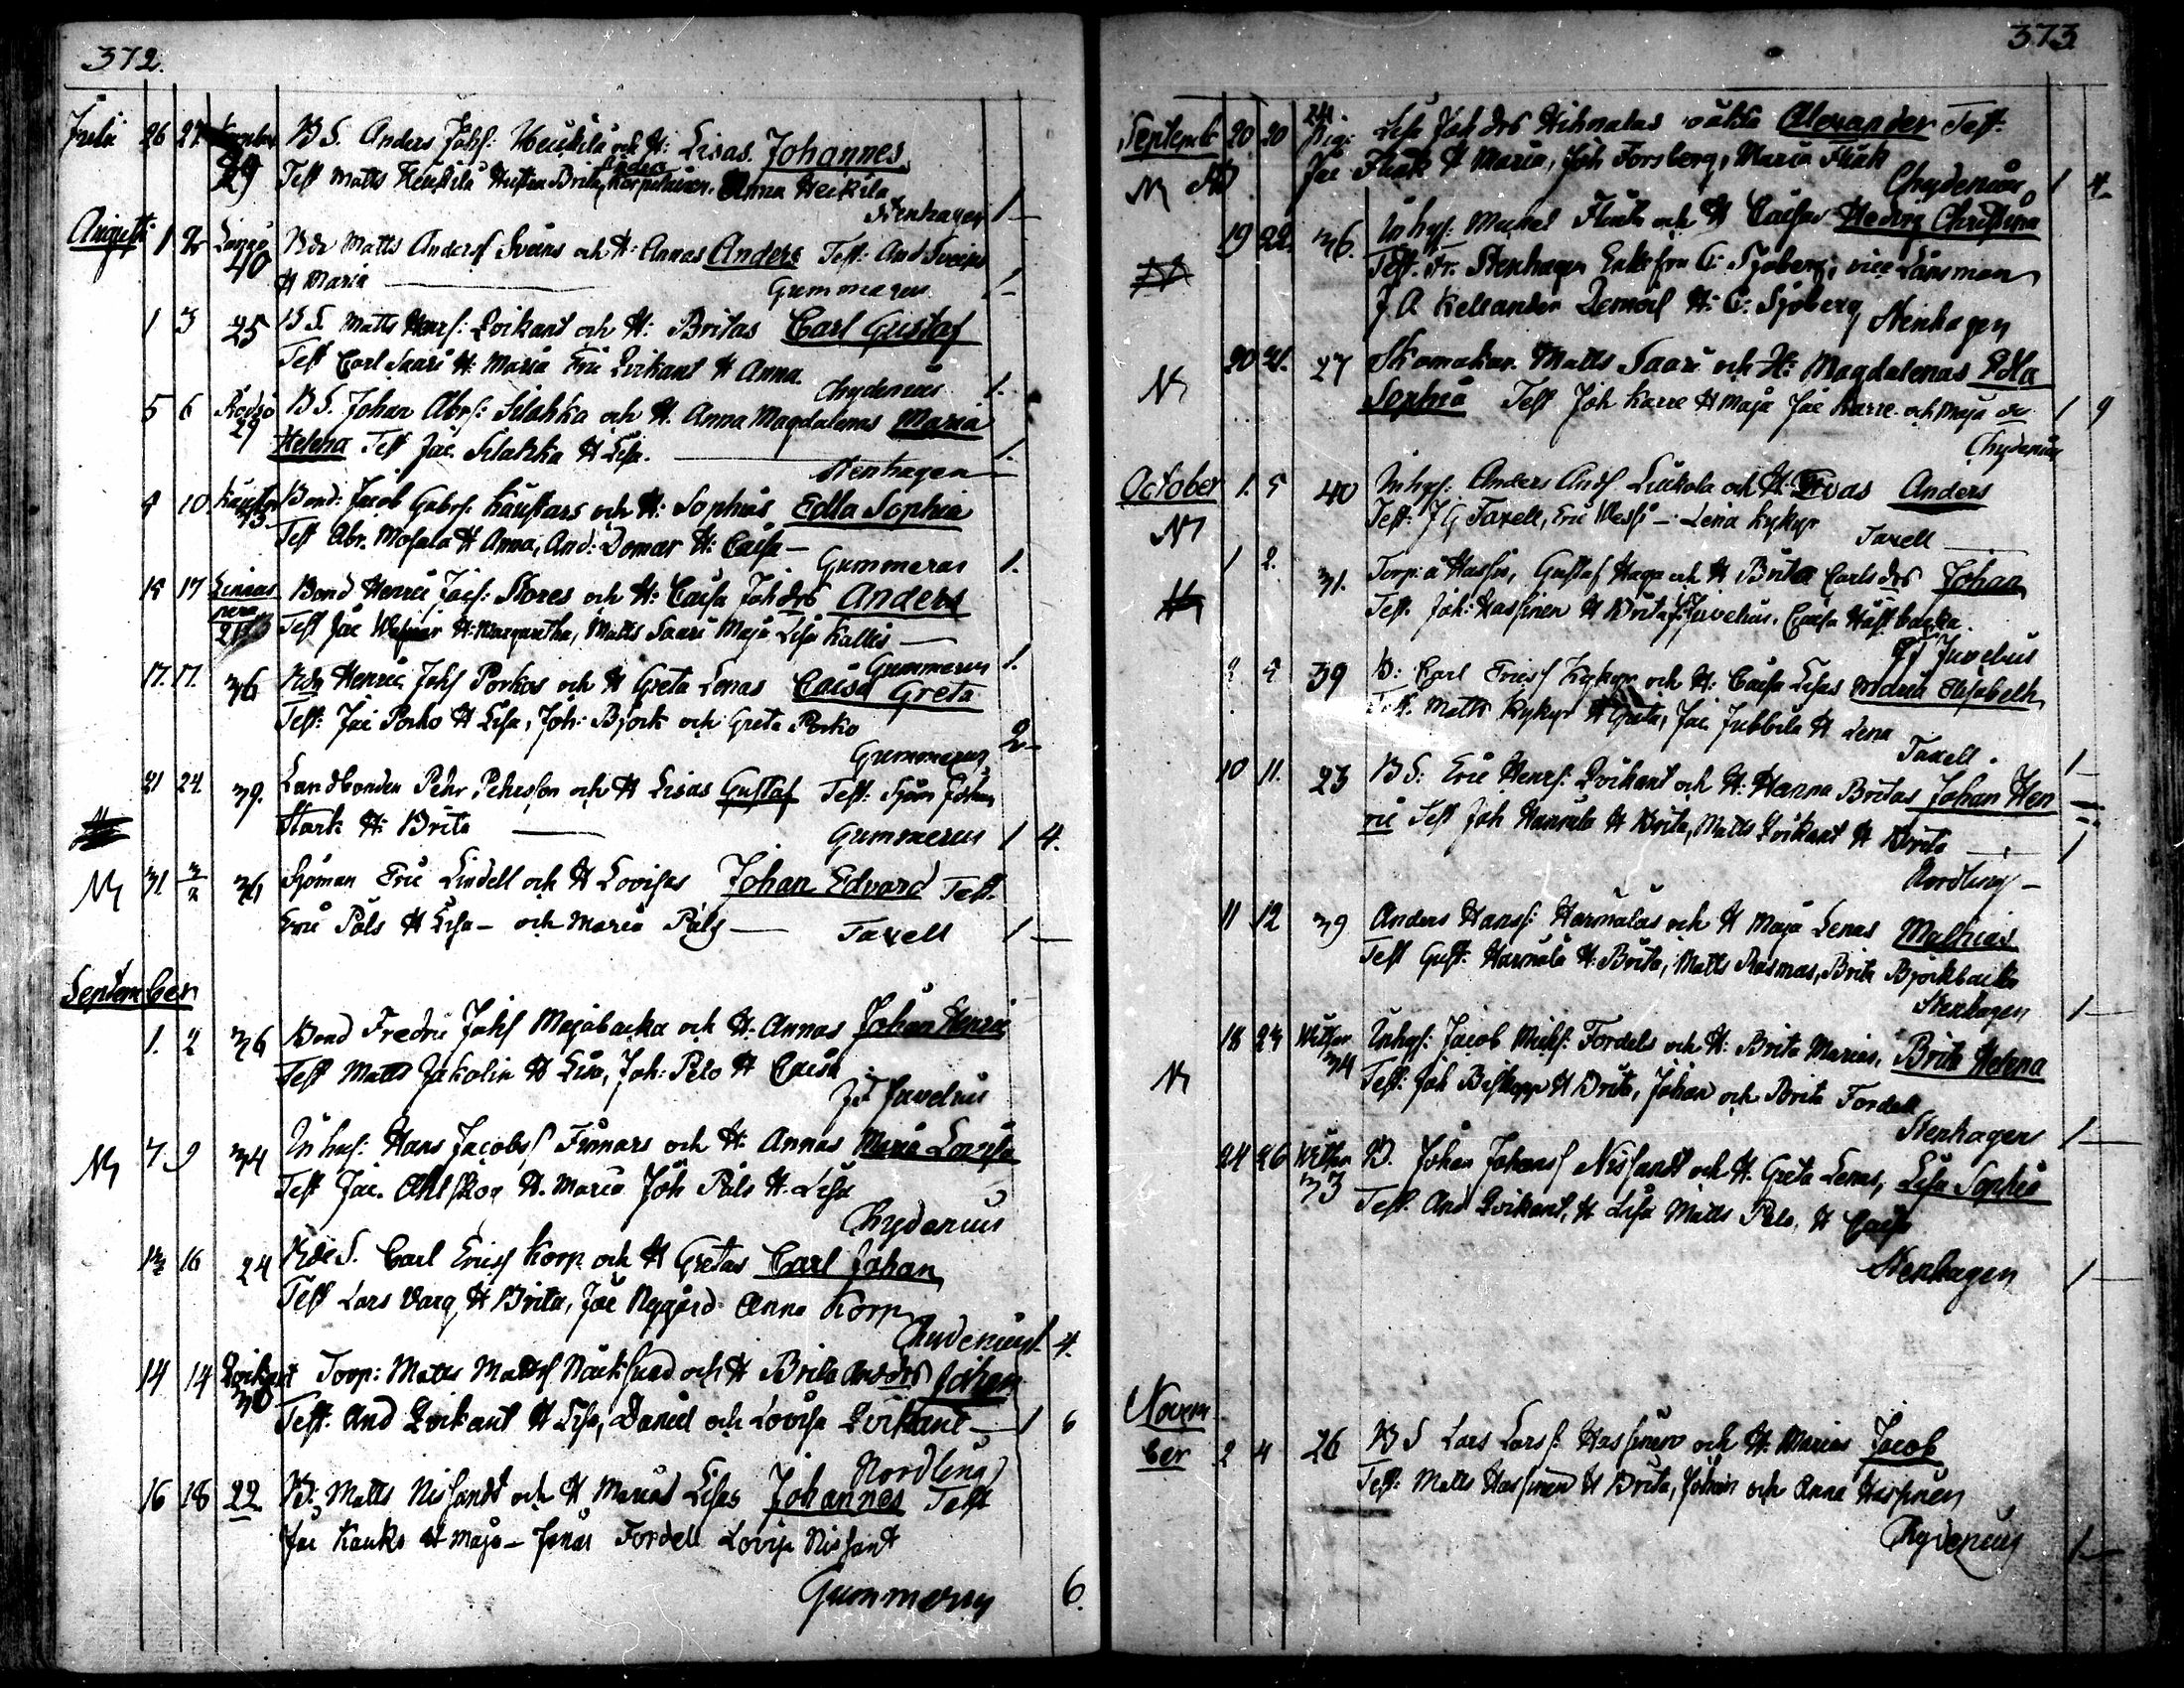 372.
Julii 26 27 29 BS. Anders Johs: Heickilä och H: Lisas. Johannes
Test Matts Heickilä Hustru Brita, Anna Heikilä
Stenhagen 1
Augusti 1 2 Långö 40 Bdr Matts Anderss Sveins och H: Annas Anders Test: And Sveins
H Maria Gummerus 1
1 3 25 BS. Matts Henrs: Qvikant och H: Britas Carl Gustaf
Test Carl Saari H: Maria Eric Qvikant H Anna.
Chydenius 1.
5 6 Rödsö 29 BS. Johan Abrs: Slahka och H. Anna Magdalenas Maria
Helena Test Jac Slahka H Lisa.
Stenhagen 1.
9 10 Kaustar Bond: Jacob Gabrs: Kaustars och H: Sophias Edla Sophia
Test Abr. Mosala H Anna, And: Domar H: Caisa
Gummerus 1.
15 17 Bond Henric Jacs: Stores och H: Caisa Joh drs Anders
Test Jac H: Margaretha, Matts Saari Maja Lisa Kallis
Gummerus 1.
17. 17. 36 Bdn Henric Johs Porkos och H Greta Lenas Caisa Greta
Test: Jac Porko H Lisa, Joh: Björk och Greta Porko
Gummerus 2
21 24 39. Landbonden Pehr Pehrsson och H Lisas Gustaf Test: Sjöm Johan
Stark H: Brita Gummerus 1 4.
N 31 3/2 36 Sjöman Eric Lindell och H Lovisas Johan Edvard Test.
Eric Påls H Lisa och Maria Påls Taxell 1
September
1. 2 36 Bond Fredric Johs Majabacka och H: Annas Johan Henric
Test Matts Jakolin H Lisa, Joh: Pelo H Caisa
Juvelius
N 7. 9 34 Inhys: Hans Jacobss Finnars och H: Annas Maria Lovisa
Test Jac. Ahlskog H. Maria Joh Påls H. Lisa
Chydenius
13 16 24 BdeS. Carl Ericss Korp och H Gretas Carl Johan
Test Lars Varg H Brita, Jac Nygård Anna Korp
Chydenius 1 4.
14 14 Qvikant 30 Torp: Matts Mattss Näcksund och H Brita And drs Johan
Test: And Qvikant H Lisa, Daniel och Lovisa Qvikant 1 6
Nordling
16 18 22 B: Matts Nissandt och H Maria Lisas Johannes Test
Jac Kauko H Maja Jonas Fordell Lovisa Nissant
Gummerus 6.
373
Septembr 20 20 24 Pig: Lisa Joh drs Hihnalas oäkta Alexander Test.
N Jac Fluck H Maria, Joh Forsberg, Maria Fluck
Chydenius 1 4
19 22. 36. Inhys: Mickel Fluck och H Caisas Hedvig Christina
Test. Hr. Stenhagen Enkefru C: Sjöberg, vice Länsman
J. A Kellander Demois H: C: Sjöberg Stenhagen
N 20 21. 27 Skomakar. Matts Saari och H: Magdalenas Edla
Sophia Test Joh Karre H Maja Jac Karre och Maja do 1 9
Chydenius
October 1. 5 40 Inhys: Anders Ands Luckola och H: Evas Anders
N Test: J G Taxell, Eric Wessi Lena Kykyr
Taxell
1 2. 31. Torp: a Hassi, Gustaf Haga och H Brita Carls drs Johan
Test. Joh: Hassinen H Brita Juvelius, Caisa Hästbacka.
Juvelius
39 B: Carl Ericss Kykyr och H: Caisa Lisas Elisabeth
Test. Matts Kykyr H Greta, Jac Jubbila H Lena
Taxell. 1
10 11. 23 BS: Eric Henrs: Qvikant och H: Hanna Britas Johan Hen
ric Test Joh Hannula H Brita, Matts Qvikant H Brita 1
Nordling
11 12 39 Anders Hanss: Harmalas och H Maja Lenas Mathias
Test Gust: Harmala H: Brita, Matts Rasmas, Brita Björkbacka
Stenhagen 1
18 23 34 Inhys: Jacob Mickls: Fordels och H: Brita Marias, Brita Helena
N Test: Joh Biskopp H Brita, Johan och Brita Fordell
Stenhagen 1
24 26 33 B. Johan Johanss Nissandt och H. Greta Lenas, Lisa Sophia
Test. And Qvikant, H Lisa Matts Pelo, H Caisa
Stenhagen 1
Novem
ber 2 4 26 BS Lars Larss: Hassinen och H: Marias Jacob
Test: Matts Hassinen H Brita, Johan och Anna Hassinen
Chydenius 1